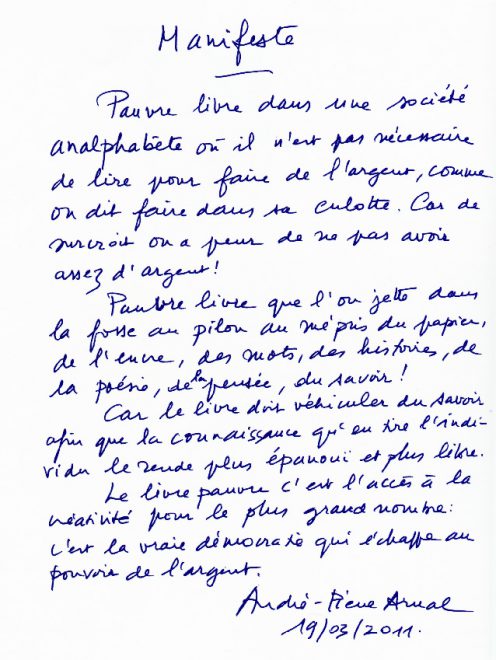 Manifeste
Pauvre livre dans une société
analphabète où il n'est pas nécessaire
de lire pour faire de l'argent, comme
on dit faire dans sa culotte. Car de
surcroît on a peur de ne pas avoir
assez d'argent!
Pauvre livre que l'on jette dans
la fosse au pilon du mépris du papier,
de l'encre, des mots, des histoires, de
la poésie, de la pensée, du savoir!
Car le livre doit véhiculer du savoir
afin que la connaissance qu'en tire l'indi-
vidu le rende plus épanoui et plus libre.
Le livre pauvre c'est l'accès à la
créativité pour le plus grand nombre:
c'est la vraie démocratie qui échappe au
pouvoir de l'argent.
André-Pierre Arnal
19/03/2011.